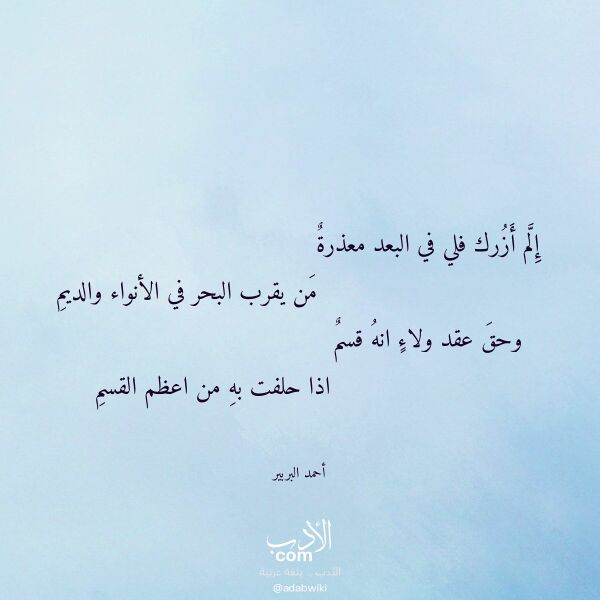 إِلَّم أَزُرك فلي في البعد معذرةٌ
مَن يقرب البحر في الأنواء والديمِ
وحقَ عقد ولاءٍ انهُ قسمٌ
اذا حلفت بهِ من اعظم القسمِ
أحمد البربير
الأدب
com
الأدب .. بلغة عربية
@adabwiki